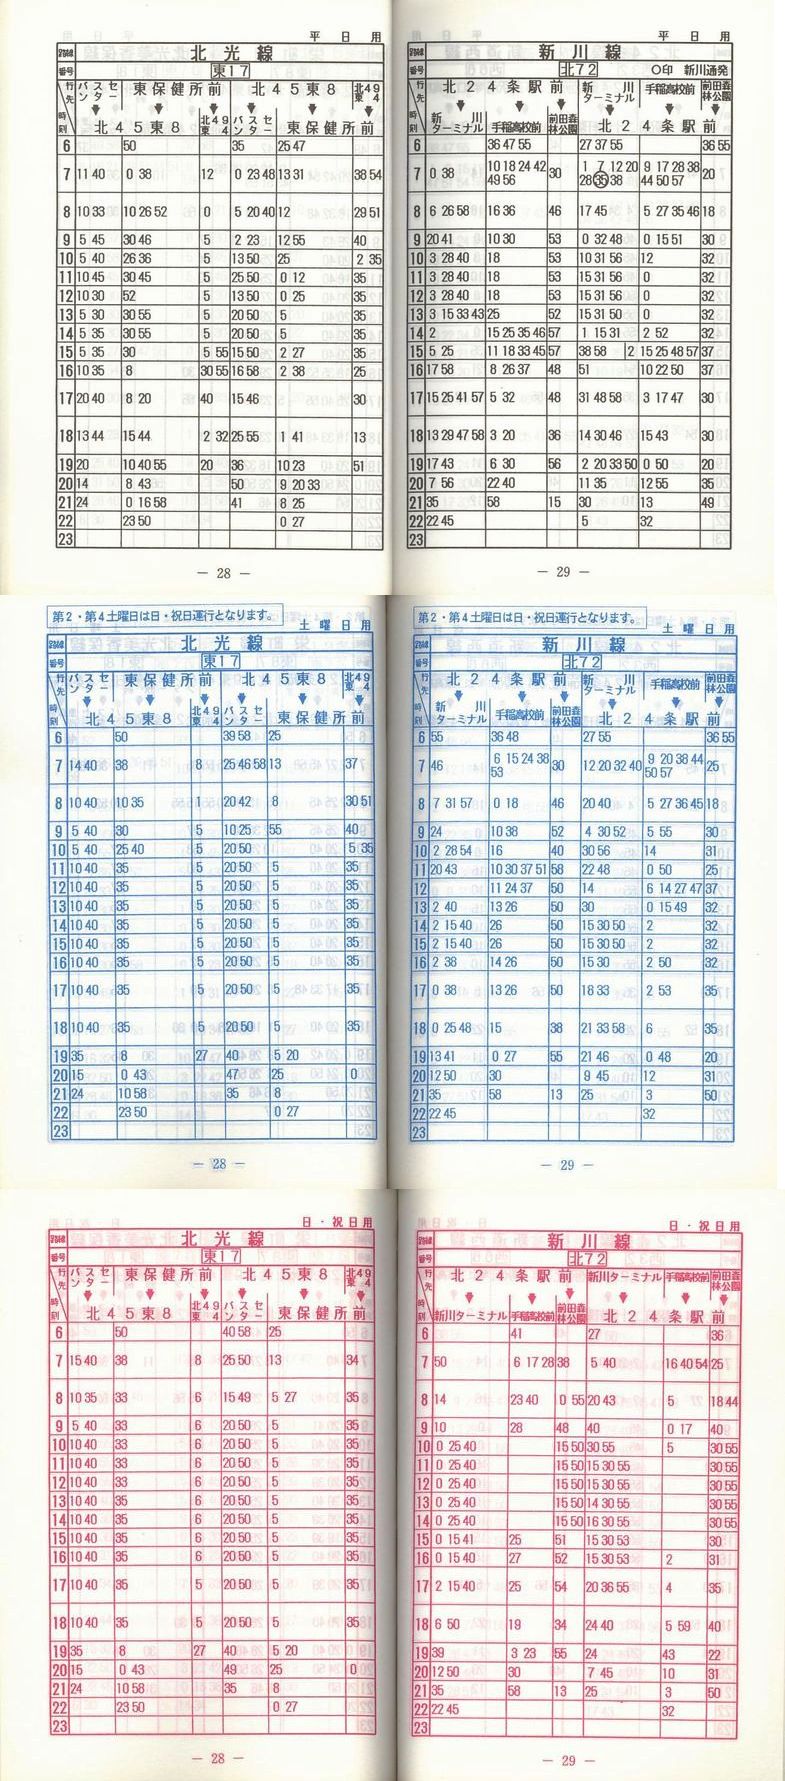 平日用
路線 北光線
番号 東17
行先 バスセンター 東保健所前 北45東8 北49東4
時刻 北45東8 北49東4 バスセンター 東保健所前
6 50 35 25 47
7 11 40 0 38 12 0 23 48 13 31 38 54
8 10 33 10 26 52 0 5 20 40 12 29 51
9 5 45 30 46 5 2 23 12 55 40
10 5 40 26 36 5 13 50 25 2 35
11 10 45 30 45 5 25 50 0 12 35
12 10 30 52 5 13 50 0 25 35
13 5 30 30 55 5 20 50 5 35
14 5 35 30 55 5 20 50 5 35
15 5 35 30 5 55 15 50 2 27 35
16 10 35 8 30 55 16 58 2 38 25
17 20 40 8 20 40 15 46 30
18 13 44 15 44 2 32 25 55 1 41 13
19 20 10 40 55 20 36 10 23 51
20 14 8 43 50 9 20 33
21 24 0 16 58 41 8 25
22 23 50 0 27
23
― 28 ―
平日用
新川線
北72 〇印 新川通発
行先 北24条駅前 新川ターミナル 手稲高校前 前田森林公園
時刻 新川ターミナル 手稲高校前 前田森林公園 北24条駅前
6 36 47 55 27 37 55 36 55
7 0 38 10 18 24 42 49 56 30 1 7 12 20 28 35 38 9 17 28 38 44 50 57 20
8 6 26 58 16 36 46 17 45 5 27 35 46 18
9 20 41 10 30 53 0 32 48 0 15 51 30
10 3 28 40 18 53 10 31 56 12 32
11 3 28 40 18 53 15 31 56 0 32
12 3 28 40 18 53 15 31 56 0 32
13 3 15 33 43 25 52 15 31 50 0 32
14 2 15 25 35 46 57 1 15 31 2 52 32
15 5 25 11 18 33 45 57 38 58 2 15 25 48 57 37
16 17 58 8 26 37 48 51 10 22 50 37
17 15 25 41 57 5 32 48 31 48 58 3 17 47 30
18 13 29 47 58 3 20 36 14 30 46 15 43 30
19 17 43 6 30 56 2 20 33 50 0 50 20
20 7 56 22 40 11 35 12 55 35
21 35 58 15 30 13 49
22 22 45 5 32
23
― 29 ―
第2・第4土曜日は日・祝日運行となります。
土曜日用
路線 北光線
番号 東17
行先 バスセンター 東保健所前 北45東8 北49東4
時刻 北45東8 北49東4 バスセンター 東保健所前
6 50 39 58 25
7 14 40 38 8 25 46 58 13 37
8 10 40 10 35 1 20 42 8 30 51
9 5 40 30 5 10 25 55 40
10 5 40 25 40 5 20 50 5 35
11 10 40 35 5 20 50 5 35
12 10 40 35 5 20 50 5 35
13 10 40 35 5 20 50 5 35
14 10 40 35 5 20 50 5 35
15 10 40 35 5 20 50 5 35
16 10 40 35 5 20 50 5 35
17 10 40 35 5 20 50 5 35
18 10 40 35 5 20 50 5 35
19 35 8 27 40 5 20
20 15 0 43 47 25 0
21 24 10 58 35 8
22 23 50 0 27
23
― 28 ―
第2・第4土曜日は日・祝日運行となります。
土曜日用
路線 新川線
番号 北72
行先 北24条駅前 新川ターミナル 手稲高校前 前田森林公園
時刻 新川ターミナル 手稲高校前 前田森林公園 北24条駅前
6 55 36 48 27 55 36 55
7 46 6 15 24 38 53 30 12 20 32 40 9 20 38 44 50 57 25
8 7 31 57 0 18 46 20 40 5 27 36 45 18
9 24 10 38 52 4 30 52 5 55 30
10 2 28 54 16 40 30 56 14 31
11 20 43 10 30 37 51 58 22 48 0 50 25
12 11 24 37 50 14 6 14 27 47 37
13 2 40 13 26 50 30 0 15 49 32
14 2 15 40 26 50 15 30 50 2 32
15 2 15 40 26 50 15 30 50 2 32
16 2 38 14 26 50 15 30 2 50 32
17 0 38 13 26 50 18 33 2 53 35
18 0 25 48 15 38 21 33 58 6 35
19 13 41 0 27 55 21 46 0 48 20
20 12 50 30 9 45 12 31
21 35 58 13 25 3 50
22 22 45 32
23
― 29 ―
日・祝日用
路線 北光線
番号 東17
行先 バスセンター 東保健所前 北45東8 北49東4
時刻 北45東8 北49東4 バスセンター 東保健所前
6 50 40 58 25
7 15 40 38 8 25 50 13 34
8 10 35 33 6 15 49 5 27 35
9 5 40 33 6 20 50 5 35
10 10 40 33 6 20 50 5 35
11 10 40 33 6 20 50 5 35
12 10 40 33 6 20 50 5 35
13 10 40 35 6 20 50 5 35
14 10 40 35 6 20 50 5 35
15 10 40 35 6 20 50 5 35
16 10 40 35 6 20 50 5 35
17 10 40 35 5 20 50 5 35
18 10 40 35 5 20 50 5 35
19 35 8 27 40 5 20
20 15 0 43 49 25 0
21 24 10 58 35 8
22 23 50 0 27
23
― 28 ―
日・祝日用
路線 新川線
番号 北72
行先 北24条駅前 新川ターミナル 手稲高校前 前田森林公園
時刻 新川ターミナル 手稲高校前 前田森林公園 北24条駅前
6 41 27 36
7 50 6 17 28 38 5 40 16 40 54 25
8 14 23 40 0 55 20 43 5 18 44
9 10 28 48 40 0 17 40
10 0 25 40 15 50 30 55 5 30 55
11 0 25 40 15 50 15 30 55 30 55
12 0 25 40 15 50 15 30 55 30 55
13 0 25 40 15 50 14 30 55 30 55
14 0 25 40 15 50 16 30 55 30 55
15 0 15 41 25 51 15 30 53 30
16 0 15 40 27 52 15 30 53 2 31
17 2 15 40 25 54 20 36 55 4 35
18 6 50 19 34 24 40 5 59 40
19 39 3 23 55 24 43 22
20 12 50 30 7 45 10 31
21 35 58 13 25 3 50
22 22 45 32
23
― 29 ―